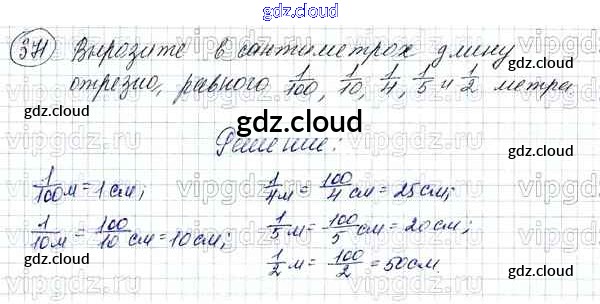 gdz.cloud
371 Выразите в сантиметрах длину
отрезка, равного 1/100, 1/10, 1/4, 1/5 и 1/2 метра
gdz.cloud
gdz.cloud
gdz.cloud
Решение:
1/100 м = 1 см; 1/4 м = 100/4 см = 25 см;
1/10 м = 100/10 см = 10 см; 1/5 м = 100/5 см = 20 см;
1/2 м = 100/2 = 50 см.
gdz.cloud
gdz.cloud
vipgdz.ru
vipgdz.ru
vipgdz.ru